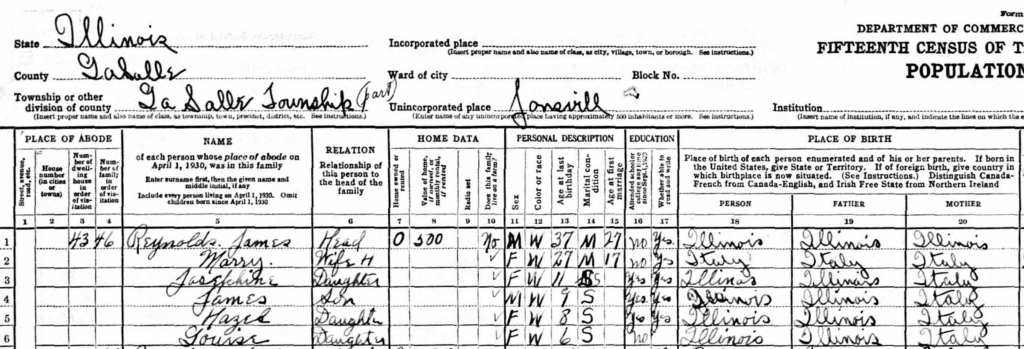 Form
State Illinois
Incorporated place
(Insert proper name and also name of class, as city, village, town, or borough. See instructions.)
DEPARTMENT OF COMMERC
FIFTEENTH CENSUS OF T
POPULATION
County LaSalle
Ward of city
Block No.
Township or other division of county La Salle Township (part)
(Insert proper name and also name of class, as township, town, precinct, district, etc. See instructions.)
Unincorporated place Jonsvill
(Enter name of any unincorporated place having approximately 500 inhabitants or more. See instructions.)
Institution
(Insert name of institution, if any, and indicate the lines on which the e
PLACE OF ABODE
Street, avenue, road, etc.
House number (in cities or towns)
Number of dwelling house in order of visitation
Number of family in order of visitation
NAME
of each person whose place of abode on April 1, 1930, was in this family
Enter surname first, then the given name and middle initial, if any
Include every person living on April 1, 1930. Omit children born since April 1, 1930
RELATION
Relationship of this person to the head of the family
HOME DATA
Home owned or rented
Value of home, if owned, or monthly rental, if rented
Radio set
Does this family live on a farm?
PERSONAL DESCRIPTION
Sex
Color or race
Age at last birthday
Marital condition
Age at first marriage
EDUCATION
Attended school or college any time since Sept. 1, 1929
Whether able to read and write
PLACE OF BIRTH
Place of birth of each person enumerated and of his or her parents. If born in the United States, give State or Territory. If of foreign birth, give country in which birthplace is now situated. (See Instructions.) Distinguish Canada-French from Canada-English, and Irish Free State from Northern Ireland
PERSON
FATHER
MOTHER
1 2 3 4 5 6 7 8 9 10 11 12 13 14 15 16 17 18 19 20
1 43 46 Reynolds James Head O 500 No M W 37 M 27 no Yes Illinois Illinois Illinois
2 Marry. Wife H ✓ F W 27 M 17 no Yes Italy Italy Italy
3 Josephine Daughter ✓ F W 11 S Yes Yes Illinois Illinois Italy
4 James Son ✓ M W 9 S Yes Yes Illinois Illinois Italy
5 Hazel Daughter ✓ F W 8 S Yes Yes Illinois Illinois Italy
6 Louise Daughter ✓ F W 6 S no Illinois Illinois Italy